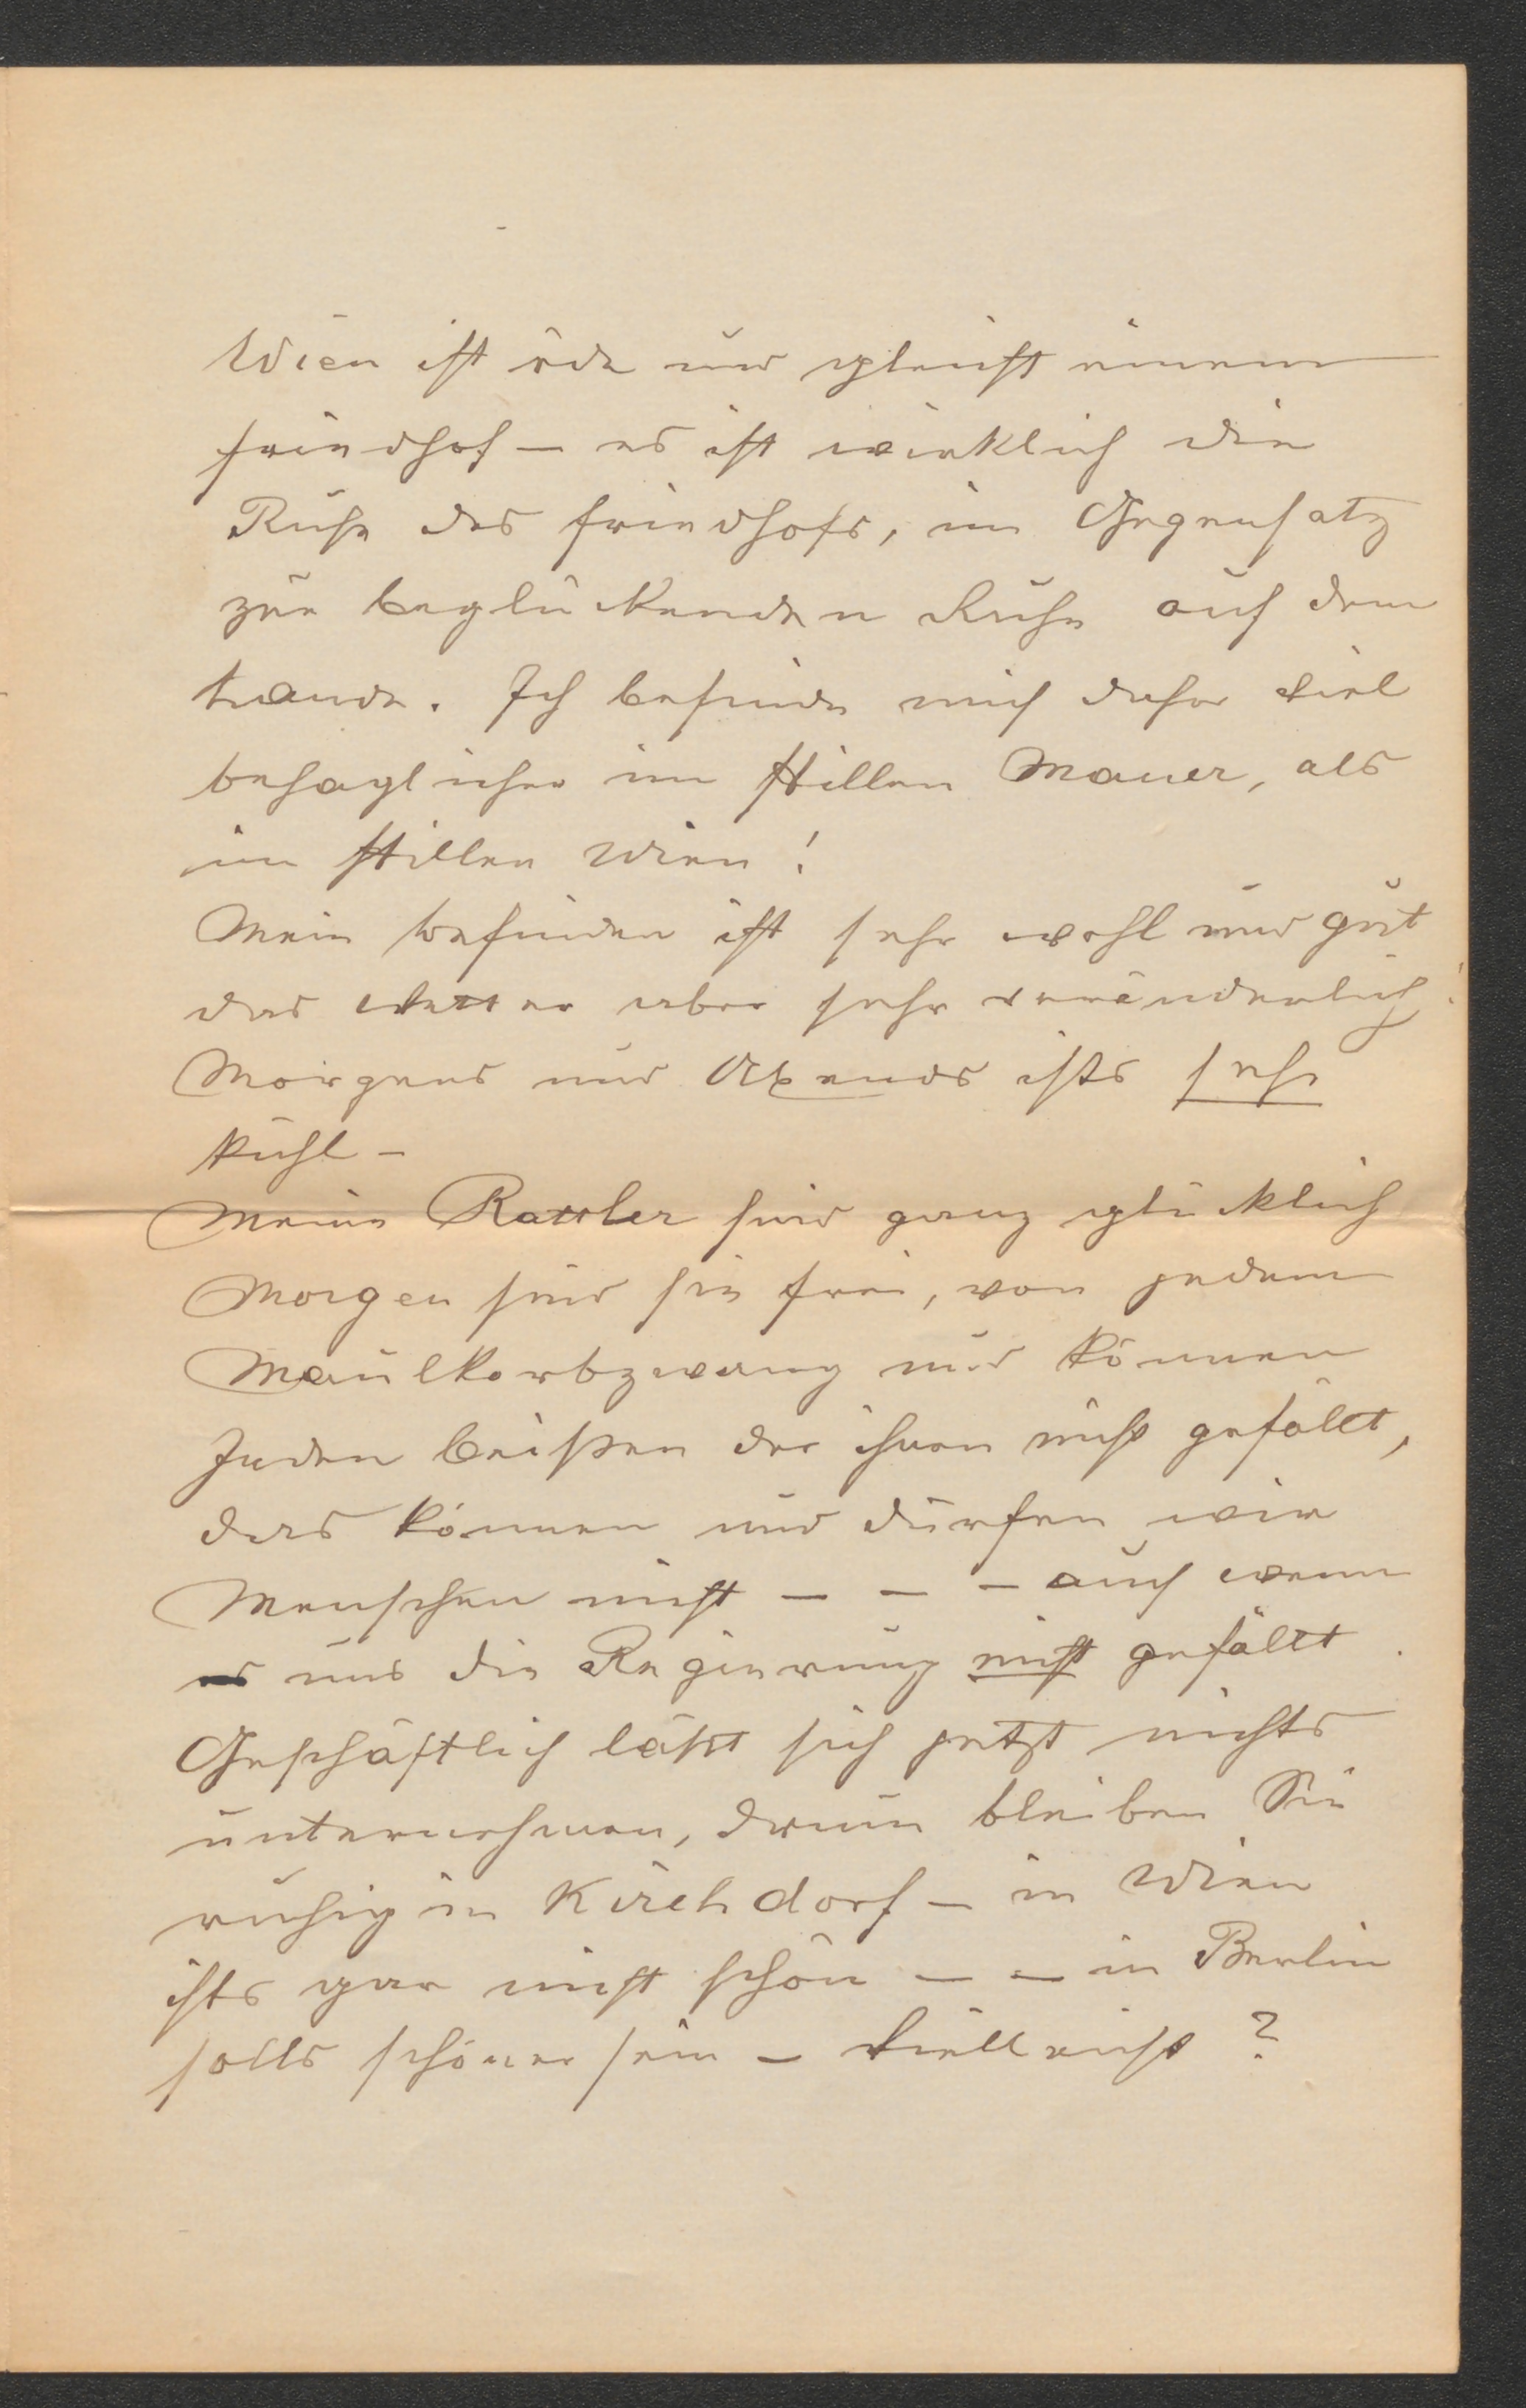 Wien ist öde und gleicht einem
Friedhof – es ist wirklich die
Ruhe des Friedhofs, im Gegensatz
zur beglückenden Ruhe auf dem
Lande. Ich befinde mich daher viel
behaglicher im stillen Mauer, als
im stillen Wien!
Mein Befinden ist sehr wohl und gut
das Wetter aber sehr veränderlich!
Morgens und Abends ists sehr
kühl –
Meine Rattler sind ganz glücklich
Morgen sind sie frei, von jedem
Maulkorbzwang und können
Jeden beißen der ihnen nicht gefällt,
das können und dürfen wir
Menschen nicht – – – auch wenn
es uns die Regierung nicht gefällt.
Geschäftlich läßt sich jetzt nichts
unternehmen, drum bleiben Sie
ruhig in Kirchdorf – in Wien
ists gar nicht schön – – in Berlin
solls schöner sein – Vielleicht?